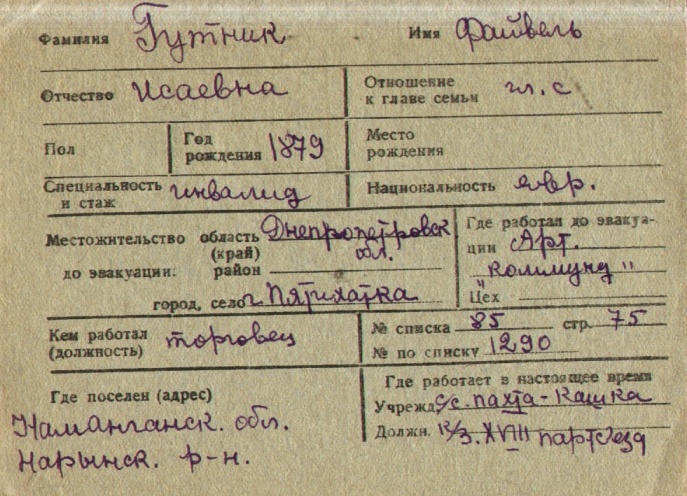 Фамилия Гутник Имя Файвель
Отчество Исаевна Отношение к главе семьи гл. с
Пол Год рождения 1879 Место рождения
Специальность и стаж инвалид Национальность евр.
Местожительство область (край) Днепропетровск обл.
до эвакуации: район
город, село г. Пятихатка
Где работал до эвакуации Арт.
"Коммунд"
Цех
Кем работал (должность) торговец
№ списка 85 стр. 75
№ по списку 1290
Где поселен (адрес)
Наманганск. обл.
Нарынск. р-н.
Где работает в настоящее время
Учрежд. с/с. пахта-Кашка
Должн. к/з. XVIII партсъезд